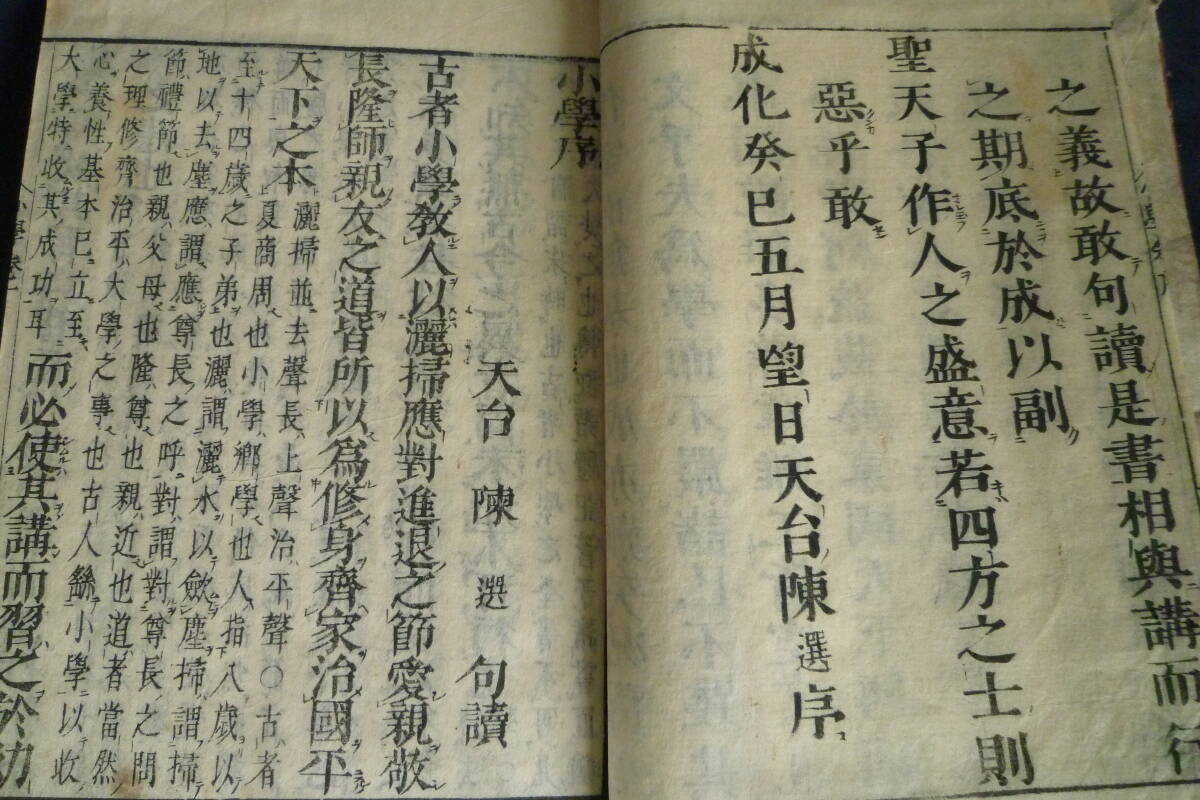 之義故敢句讀是書相與講而行
之期底於成以副
聖天子作人之盛意若四方之士則
惡乎敢
成化癸巳五月望日天台陳選序
小學序
天台陳選句讀
古者小學教人以灑掃應對進退之節愛親敬
長隆師親友之道皆所以爲修身齊家治國平
天下之本
灑掃並去聲長上聲治平聲○古者
夏商周也小學鄉學也人指八歲以
至十四歲之子弟也灑謂灑水以斂塵掃謂掃
地以去塵應謂應尊長之呼對謂對尊長之問
節禮節也親父母也隆尊也親近也道者當然
之理修齊治平大學之事也古人繇小學以收
心養性基本已立至
大學特收其成功耳
而必使其講而習之於幼